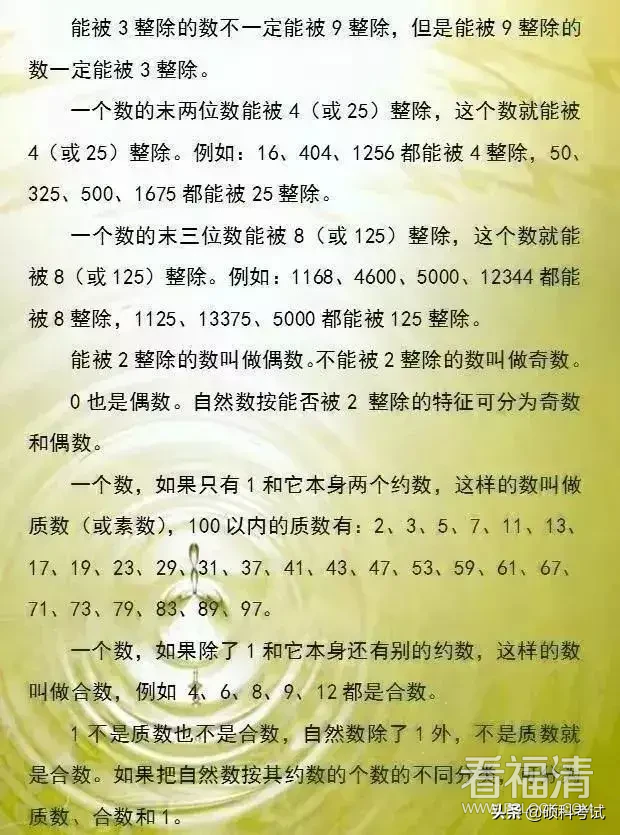 能被 3 整除的数不一定能被 9 整除，但是能被 9 整除的
数一定能被 3 整除。
一个数的末两位数能被 4（或 25）整除，这个数就能被
4（或 25）整除。例如：16、404、1256 都能被 4 整除，50、
325、500、1675 都能被 25 整除。
一个数的末三位数能被 8（或 125）整除，这个数就能
被 8（或 125）整除。例如：1168、4600、5000、12344 都能
被 8 整除，1125、13375、5000 都能被 125 整除。
能被 2 整除的数叫做偶数。不能被 2 整除的数叫做奇数。
0 也是偶数。自然数按能否被 2 整除的特征可分为奇数
和偶数。
一个数，如果只有 1 和它本身两个约数，这样的数叫做
质数（或素数），100 以内的质数有：2、3、5、7、11、13、
17、19、23、29、31、37、41、43、47、53、59、61、67、
71、73、79、83、89、97。
一个数，如果除了 1 和它本身还有别的约数，这样的数
叫做合数，例如 4、6、8、9、12 都是合数。
1 不是质数也不是合数，自然数除了 1 外，不是质数就
是合数。如果把自然数按其约数的个数的不同分类，
看福清
质数、合数和 1。
头条 @硕科考试